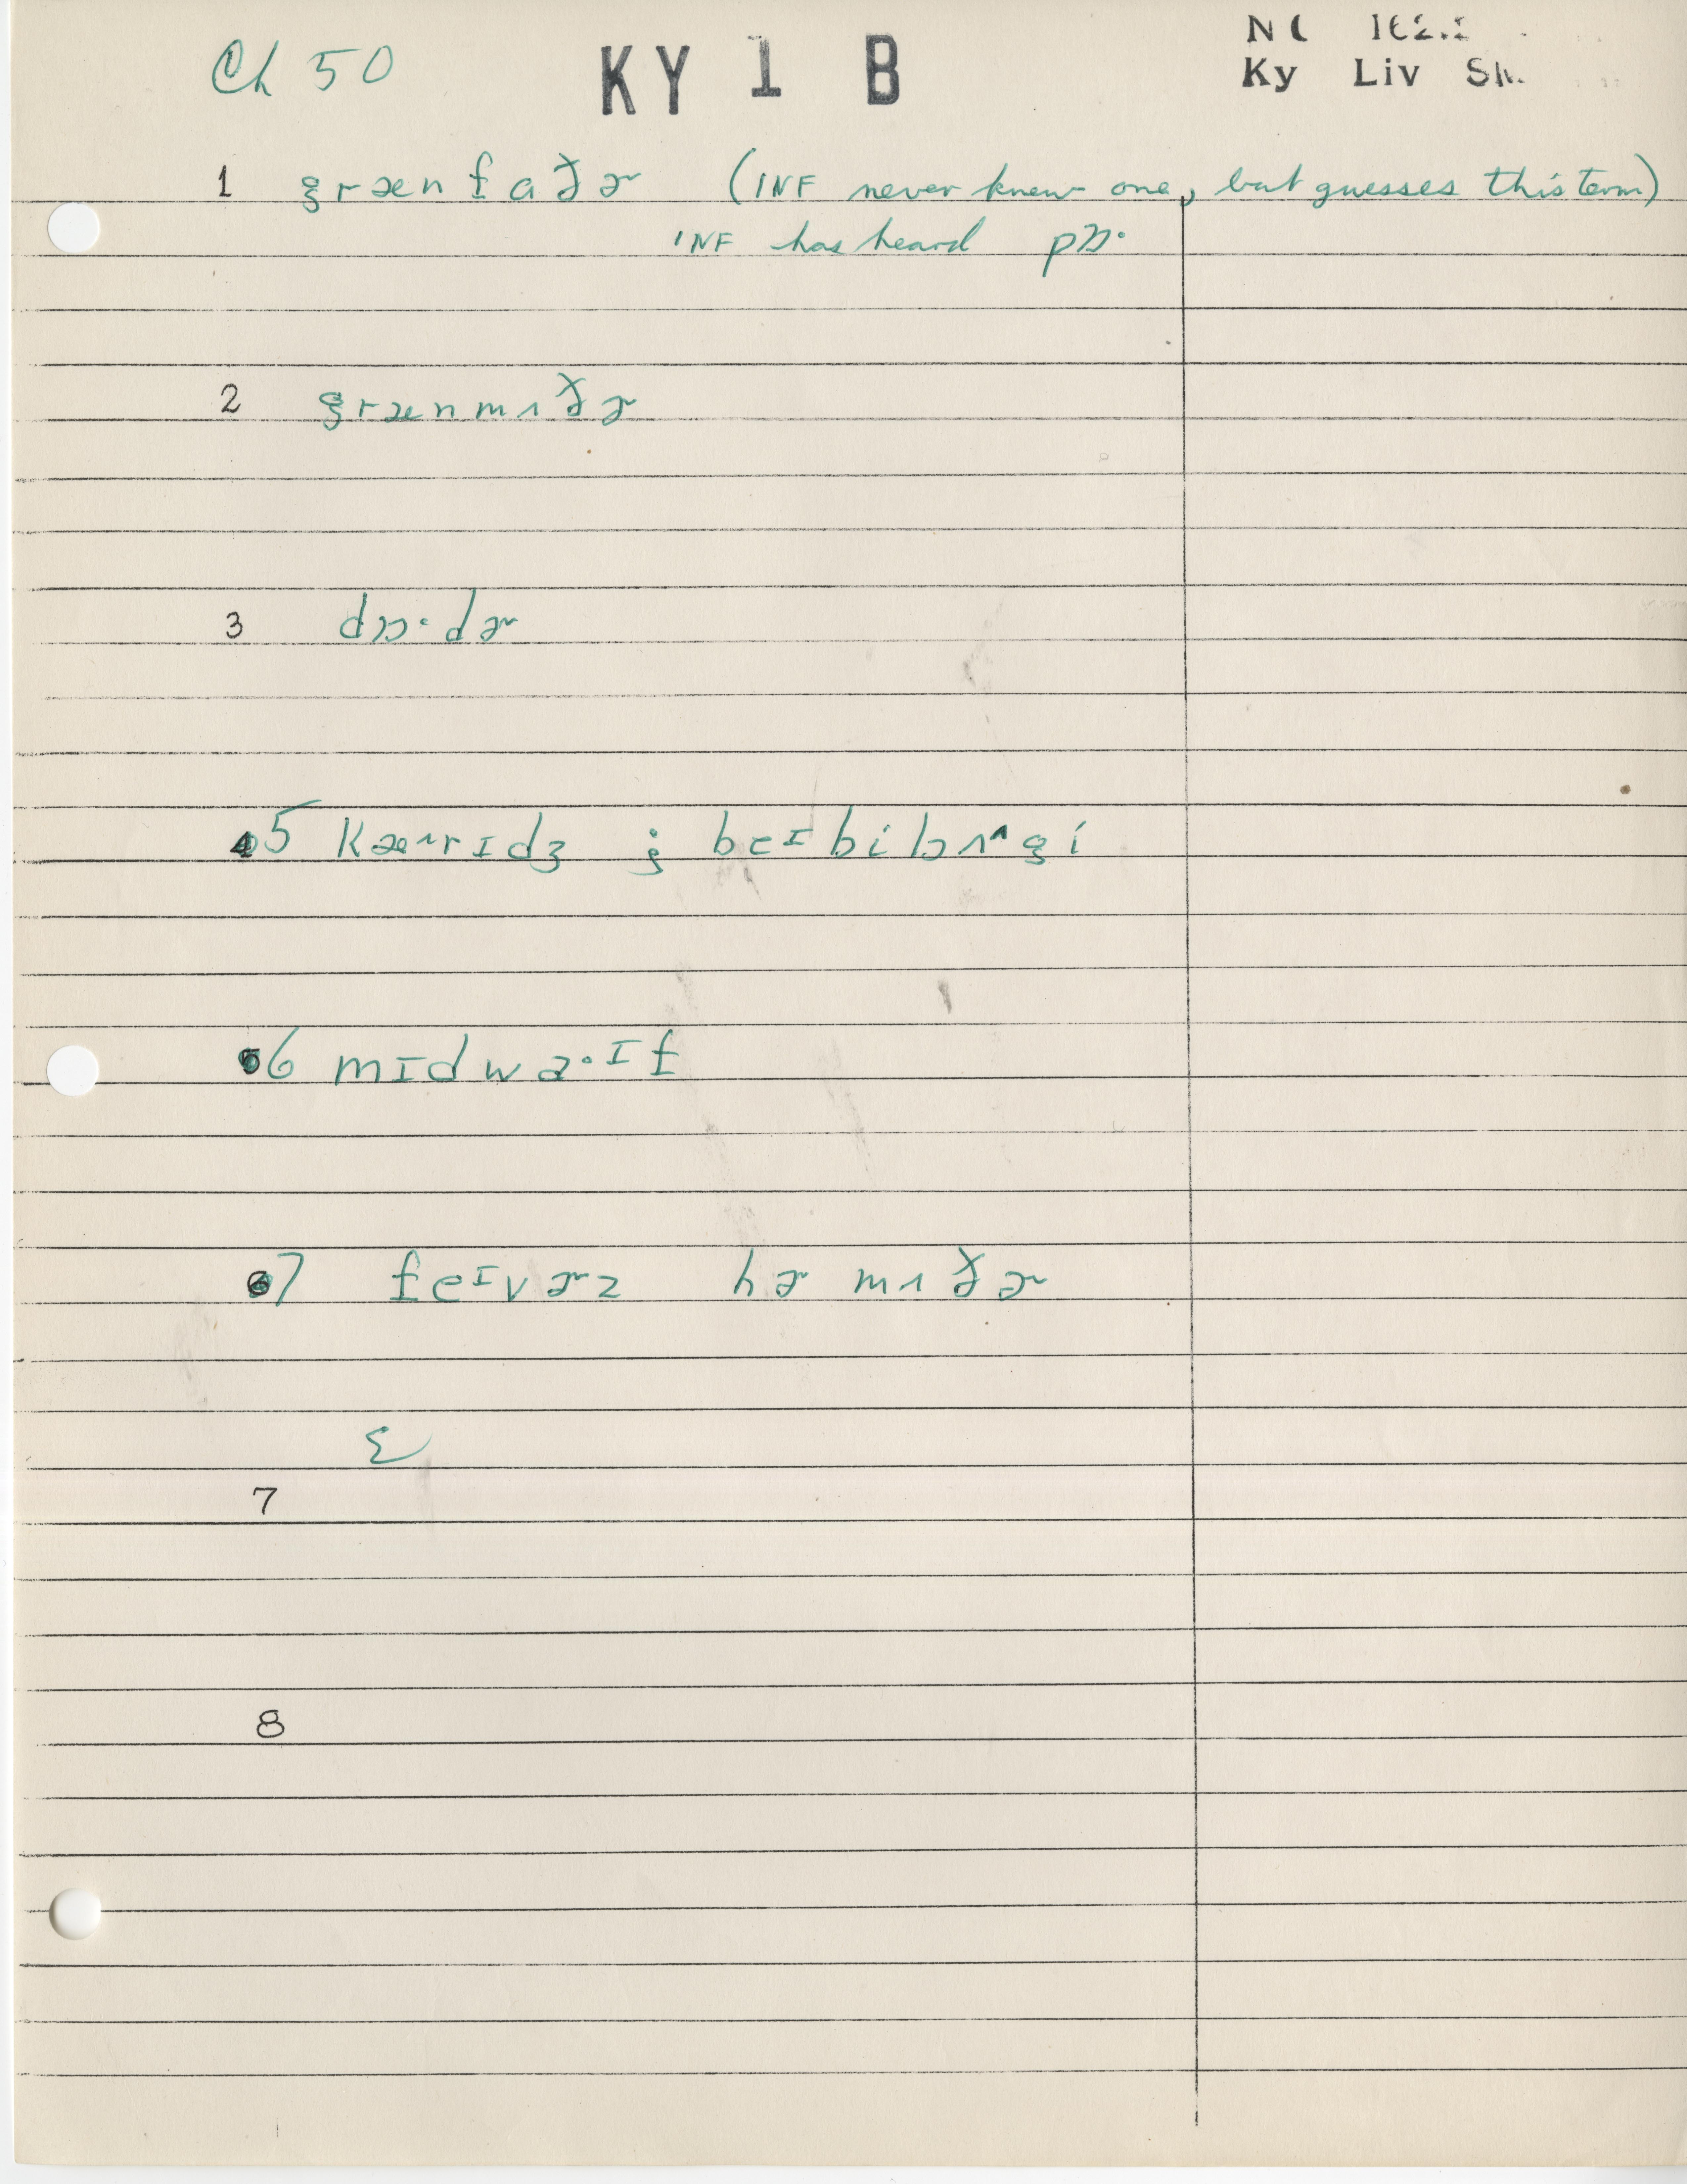 Ch 50 KY 1 B
Ky Liv
1 grænfɑðɚ (INF never knew one, but guesses this term)
INF has heard pɒ·
2 grænmʌðɚ
3 dɒ·dɚ
5 kæ˞rɪdʒ ; beɪbibʌ^gi
6 mɪdwa·ɪf
7 feɪvɚz hɚ mʌðɚ
Σ
7
8